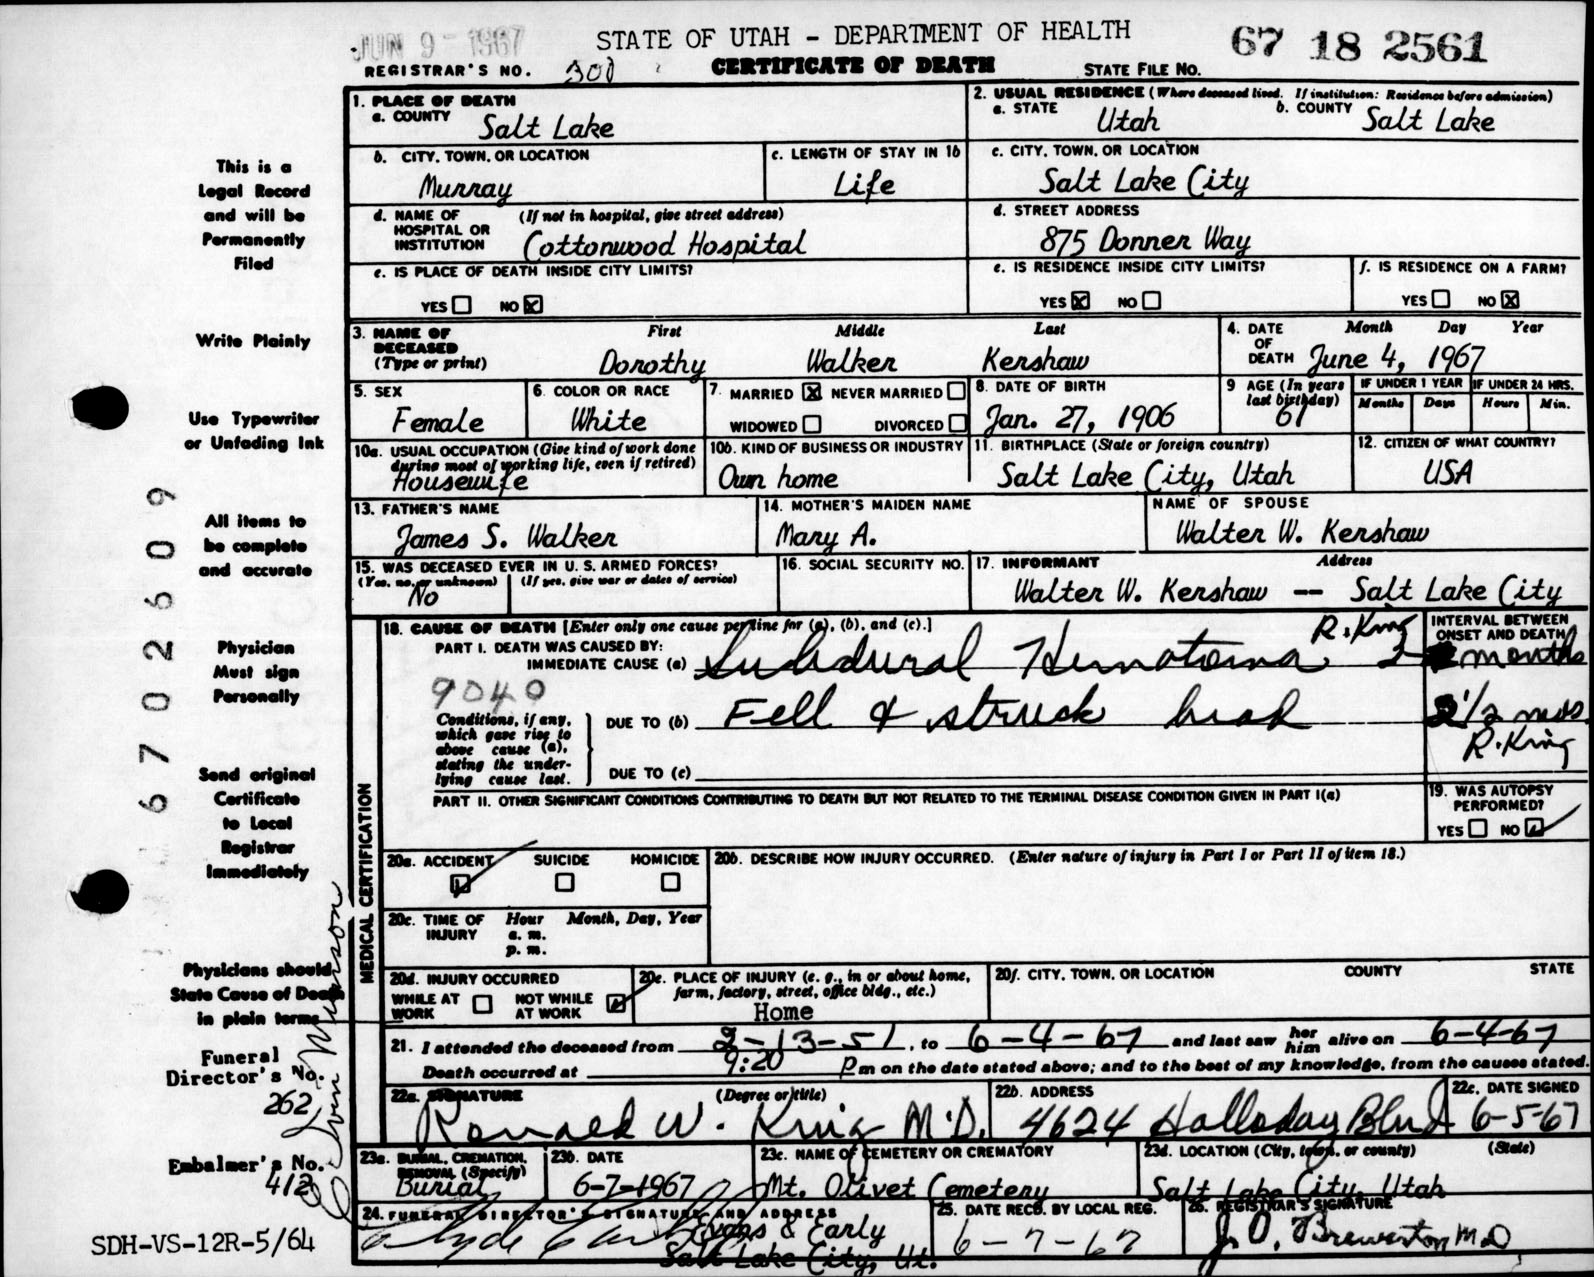 JUN 9 - 1967
STATE OF UTAH - DEPARTMENT OF HEALTH
67 18 2561
REGISTRAR'S NO. 300
CERTIFICATE OF DEATH
STATE FILE NO.
1. PLACE OF DEATH
a. COUNTY Salt Lake
2. USUAL RESIDENCE (Where deceased lived. If institution: Residence before admission)
a. STATE Utah b. COUNTY Salt Lake
b. CITY, TOWN, OR LOCATION
Murray
c. LENGTH OF STAY IN 1b
Life
c. CITY, TOWN, OR LOCATION
Salt Lake City
d. NAME OF HOSPITAL OR INSTITUTION (If not in hospital, give street address)
Cottonwood Hospital
d. STREET ADDRESS
875 Donner Way
e. IS PLACE OF DEATH INSIDE CITY LIMITS?
YES NO X
e. IS RESIDENCE INSIDE CITY LIMITS?
YES X NO
f. IS RESIDENCE ON A FARM?
YES NO X
3. NAME OF DECEASED (Type or print)
First Middle Last
Dorothy Walker Kershaw
4. DATE OF DEATH Month Day Year
June 4, 1967
5. SEX
Female
6. COLOR OR RACE
White
7. MARRIED X NEVER MARRIED
WIDOWED DIVORCED
8. DATE OF BIRTH
Jan. 27, 1906
9 AGE (In years last birthday)
61
IF UNDER 1 YEAR
Months Days
IF UNDER 24 HRS.
Hours Min.
10a. USUAL OCCUPATION (Give kind of work done during most of working life, even if retired)
Housewife
10b. KIND OF BUSINESS OR INDUSTRY
Own home
11. BIRTHPLACE (State or foreign country)
Salt Lake City, Utah
12. CITIZEN OF WHAT COUNTRY?
USA
13. FATHER'S NAME
James S. Walker
14. MOTHER'S MAIDEN NAME
Mary A.
NAME OF SPOUSE
Walter W. Kershaw
15. WAS DECEASED EVER IN U. S. ARMED FORCES?
(Yes, no, or unknown) (If yes, give war or dates of service)
No
16. SOCIAL SECURITY NO.
17. INFORMANT Address
Walter W. Kershaw -- Salt Lake City
MEDICAL CERTIFICATION
18. CAUSE OF DEATH [Enter only one cause per line for (a), (b), and (c).]
INTERVAL BETWEEN ONSET AND DEATH
PART I. DEATH WAS CAUSED BY:
R. King
IMMEDIATE CAUSE (a) Subdural Hematoma 2 months
9040
Conditions, if any, which gave rise to above cause (a), stating the underlying cause last.
DUE TO (b) Fell & struck head 2 1/2 mos
R. King
DUE TO (c)
PART II. OTHER SIGNIFICANT CONDITIONS CONTRIBUTING TO DEATH BUT NOT RELATED TO THE TERMINAL DISEASE CONDITION GIVEN IN PART I(a)
19. WAS AUTOPSY PERFORMED?
YES NO
20a. ACCIDENT SUICIDE HOMICIDE
20b. DESCRIBE HOW INJURY OCCURRED. (Enter nature of injury in Part I or Part II of item 18.)
20c. TIME OF INJURY Hour Month, Day, Year
a. m.
p. m.
20d. INJURY OCCURRED
WHILE AT WORK NOT WHILE AT WORK
20e. PLACE OF INJURY (e. g., in or about home, farm, factory, street, office bldg., etc.)
Home
20f. CITY, TOWN, OR LOCATION COUNTY STATE
21. I attended the deceased from 2-13-51, to 6-4-67 and last saw her him alive on 6-4-67
Death occurred at 9:20 P m on the date stated above; and to the best of my knowledge, from the causes stated.
22a. SIGNATURE (Degree or title)
Ronald W. King M.D.
22b. ADDRESS
4624 Holladay Blvd
22c. DATE SIGNED
6-5-67
23a. BURIAL, CREMATION, REMOVAL (Specify)
Burial
23b. DATE
6-7-1967
23c. NAME OF CEMETERY OR CREMATORY
Mt. Olivet Cemetery
23d. LOCATION (City, town, or county) (State)
Salt Lake City, Utah
24. FUNERAL DIRECTOR'S SIGNATURE AND ADDRESS
Evans & Early
Salt Lake City, Ut.
25. DATE RECD. BY LOCAL REG.
6-7-67
26. REGISTRAR'S SIGNATURE
J. O. Brewerton MD
This is a
Legal Record
and will be
Permanently
Filed
Write Plainly
Use Typewriter
or Unfading Ink
All items to
be complete
and accurate
Physician
Must sign
Personally
Send original
Certificate
to Local
Registrar
Immediately
Physicians should
State Cause of Death
in plain terms
Funeral
Director's No.
262
Embalmer's No.
412
6702609
SDH-VS-12R-5/64